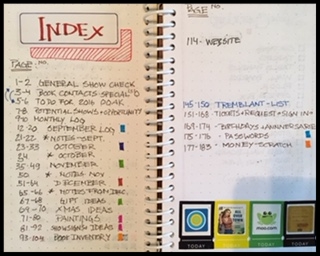 INDEX
PAGE no.
1-2 GENERAL SHOW CHECK
3-4 BOOK CONTACTS-SPECIAL
5-6 TO DO FOR 2016 OOAK
7-8 POTENTIAL SHOWS/OPPORTUNITY
9-10 MONTHLY LOG
12-20 SEPTEMBER LOG
21-22 * NOTES-SEPT.
23-33 OCTOBER
34 * OCTOBER
35-49 NOVEMBER
50 * NOTES NOV
51-64 DECEMBER
65-66 * NOTES FROM DEC.
67-68 GIFT IDEAS
69-70 XMAS IDEAS
71-80 PAINTINGS
81-92 IDEAS
93-104 BOOK INVENTORY
PAGE no.
114-WEBSITE
145-150 TREMBLANT-LIST
151-168 TICKETS+REQUEST+SIGN IN+
169-174 - BIRTHDAYS+ANNIVERSARIES
175-176 - PASSWORDS
177-185 - MONEY-SCRATCH
TODAY
TODAY
TODAY
TODAY